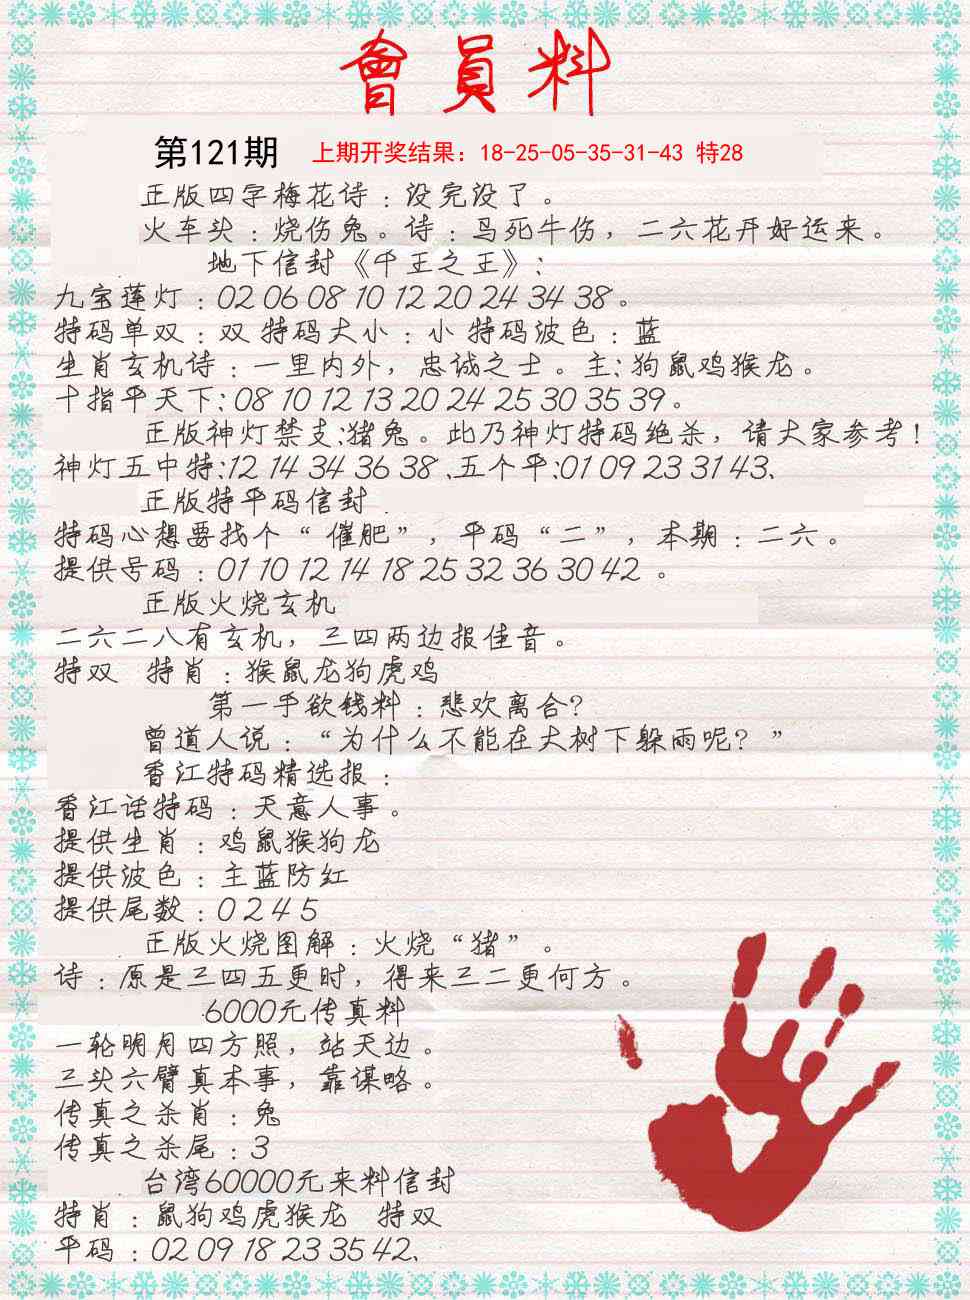 會員料
第121期 上期开奖结果：18-25-05-35-31-43 特28
正版四字梅花诗：没完没了。
火车头：烧伤兔。诗：鸟死牛伤，二六花开好运来。
地下信封《千王之王》：
九宝莲灯：02 06 08 10 12 20 24 34 38。
特码单双：双 特码大小：小 特码波色：蓝
生肖玄机诗：一里内外，忠诚之士。主：狗鼠鸡猴龙。
十指平天下：08 10 12 13 20 24 25 30 35 39。
正版神灯禁支：猪兔。此乃神灯特码绝杀，请大家参考！
神灯五中特：12 14 34 36 38、五个平：01 09 23 31 43、
正版特平码信封
特码心想要找个“催肥”，平码“二”，本期：二六。
提供号码：01 10 12 14 18 25 32 36 30 42 。
正版火烧玄机
二六二八有玄机，三四两边报佳音。
特双 特肖：猴鼠龙狗虎鸡
第一手欲钱料：悲欢离合？
曾道人说：“为什么不能在大树下躲雨呢？”
香江特码精选报：
香江话特码：天意人事。
提供生肖：鸡鼠猴狗龙
提供波色：主蓝防红
提供尾数：0 2 4 5
正版火烧图解：火烧“猪”。
诗：原是三四五更时，得来三二更何方。
6000元传真料
一轮明月四方照，站天边。
三头六臂真本事，靠谋略。
传真之杀肖：兔
传真之杀尾：3
台湾60000元来料信封
特肖：鼠狗鸡虎猴龙 特双
平码：02 09 18 23 35 42、